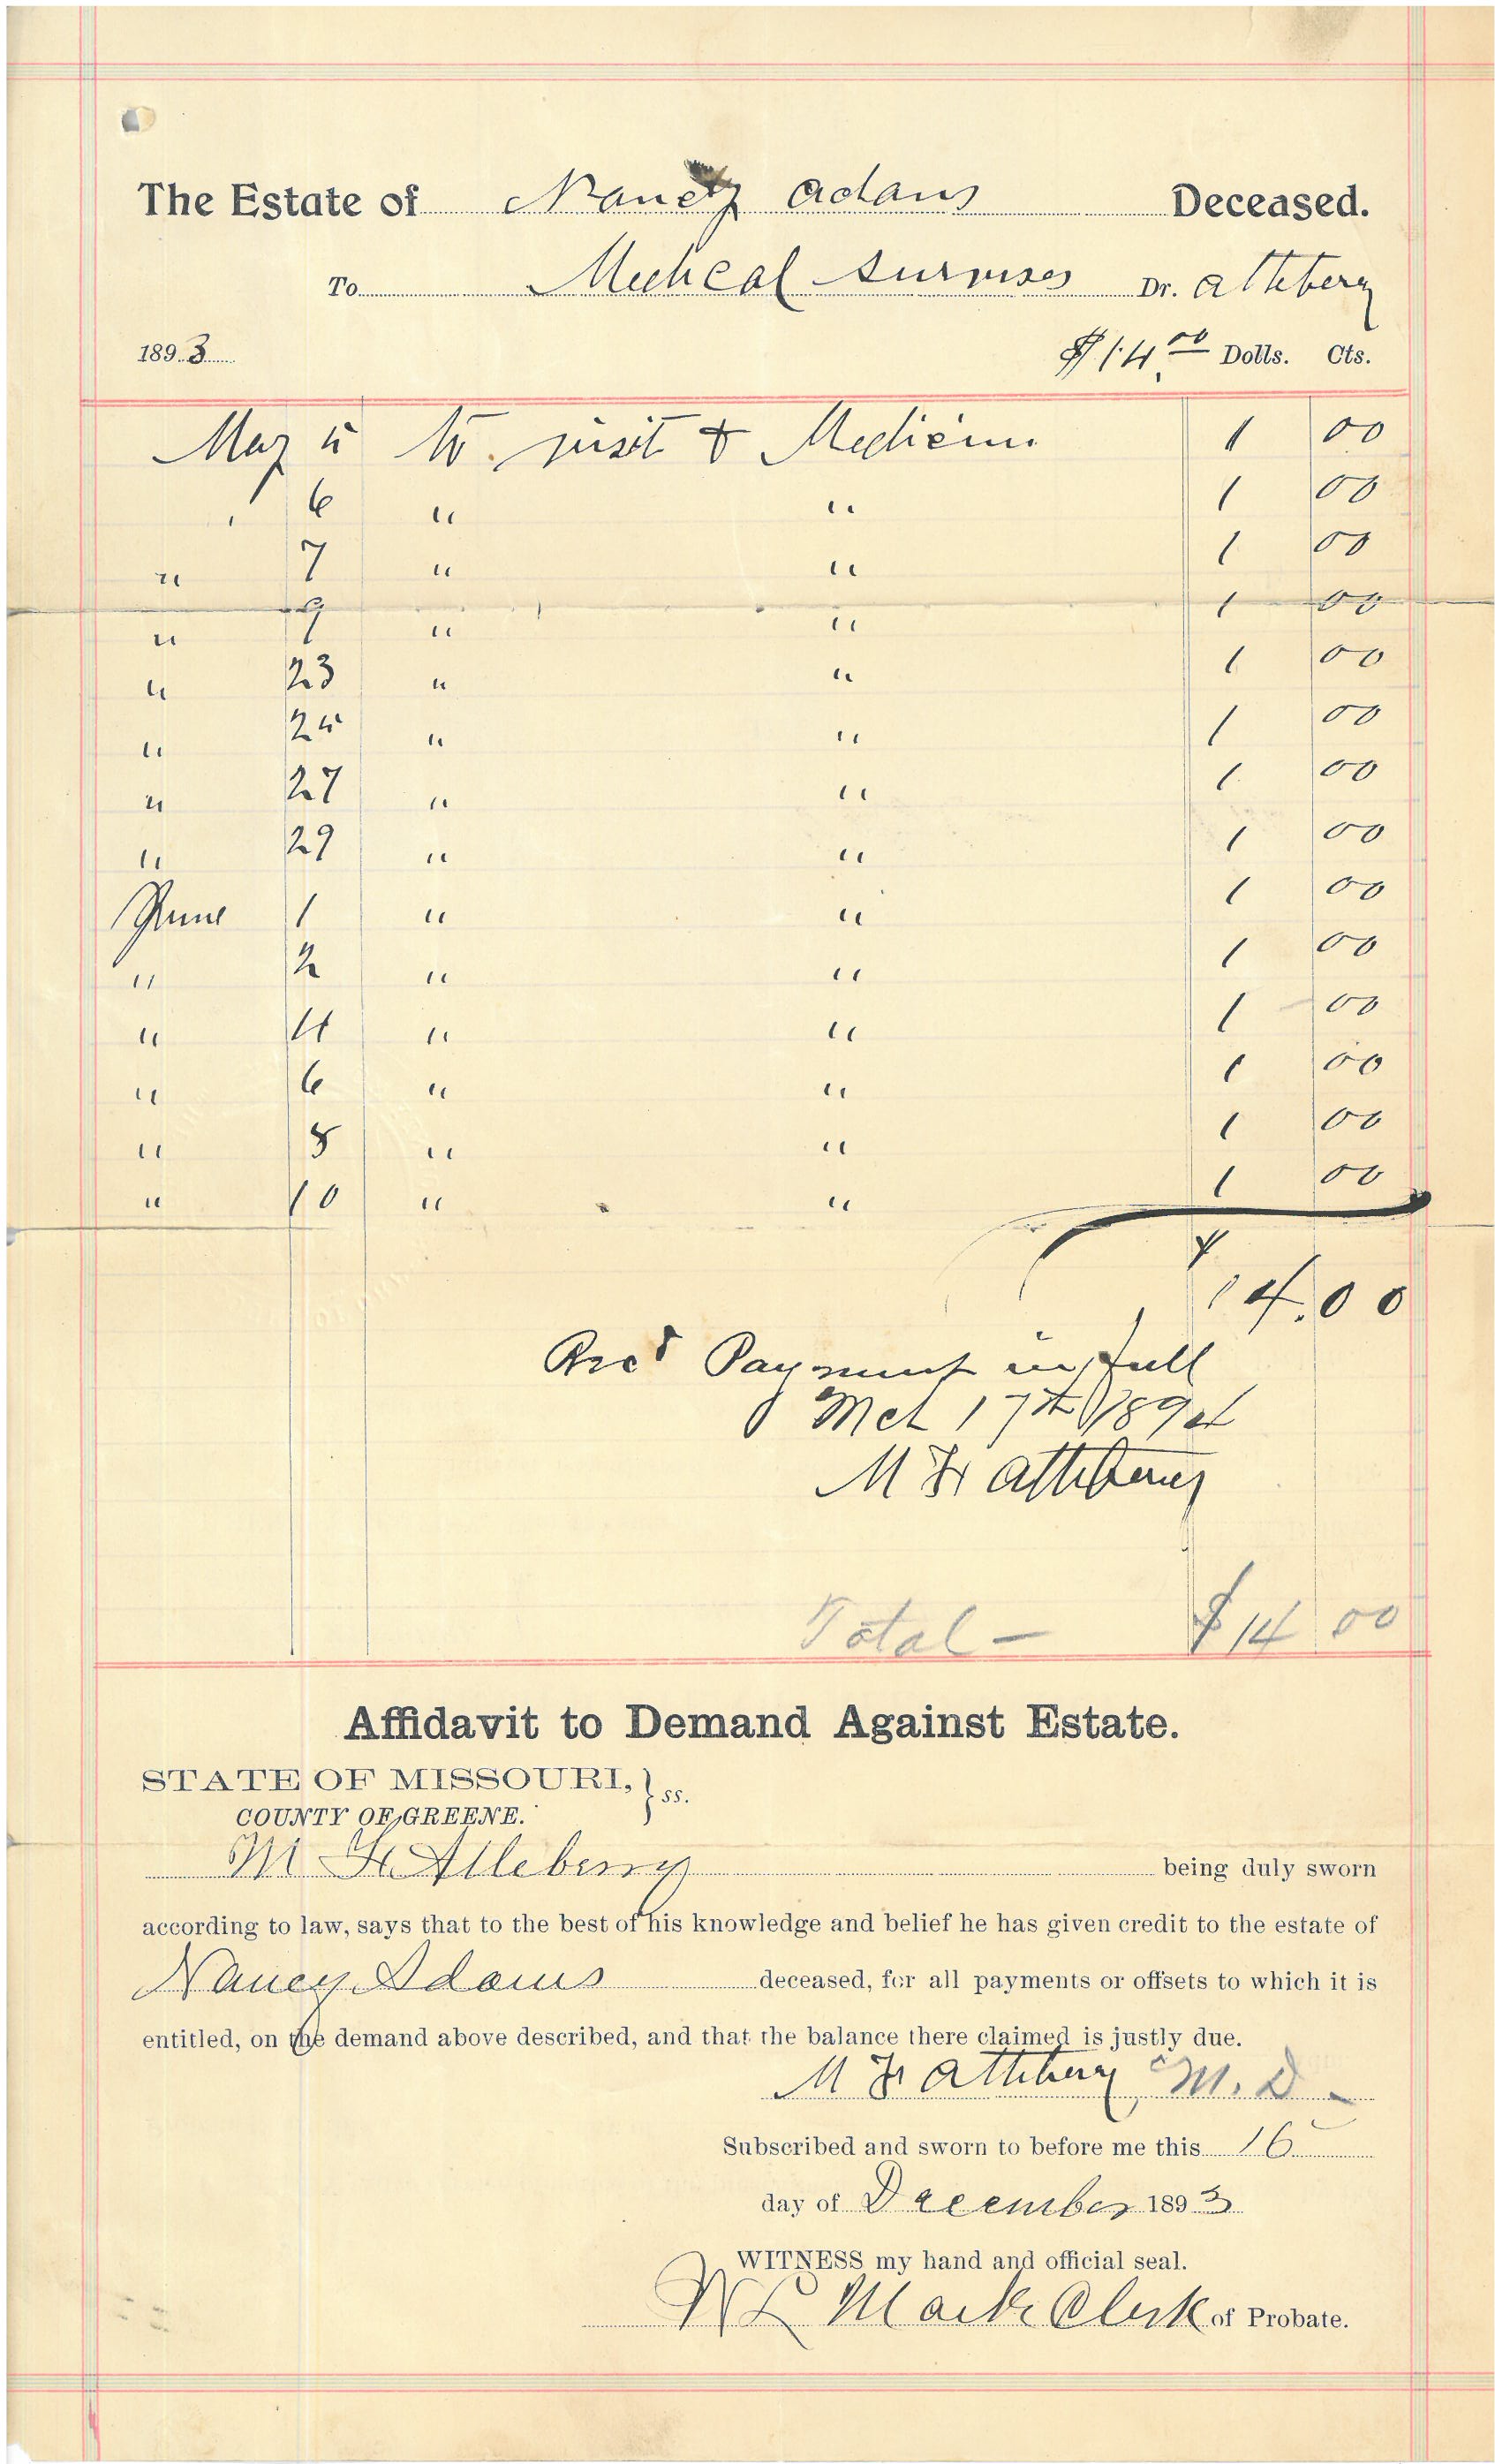 The Estate of Nancy Adams Deceased.
To Medical survises Dr. Atteberry
1893 $14.00 Dolls. Cts.
May 5 to visit & Medicine 1 00
" 6 " " 1 00
" 7 " " 1 00
" 9 " " 1 00
" 23 " " 1 00
" 25 " " 1 00
" 27 " " 1 00
" 29 " " 1 00
June 1 " " 1 00
" 2 " " 1 00
" 4 " " 1 00
" 6 " " 1 00
" 8 " " 1 00
" 10 " " 1 00
$14.00
Recd Payment in full
Mch 17th 1894
M F Atteberry
Total — $14 00
Affidavit to Demand Against Estate.
STATE OF MISSOURI, } ss.
COUNTY OF GREENE.
M F Atteberry being duly sworn
according to law, says that to the best of his knowledge and belief he has given credit to the estate of
Nancy Adams deceased, for all payments or offsets to which it is
entitled, on the demand above described, and that the balance there claimed is justly due.
M F Atteberry M.D.
Subscribed and sworn to before me this 16
day of December 1893
WITNESS my hand and official seal.
Clerk of Probate.